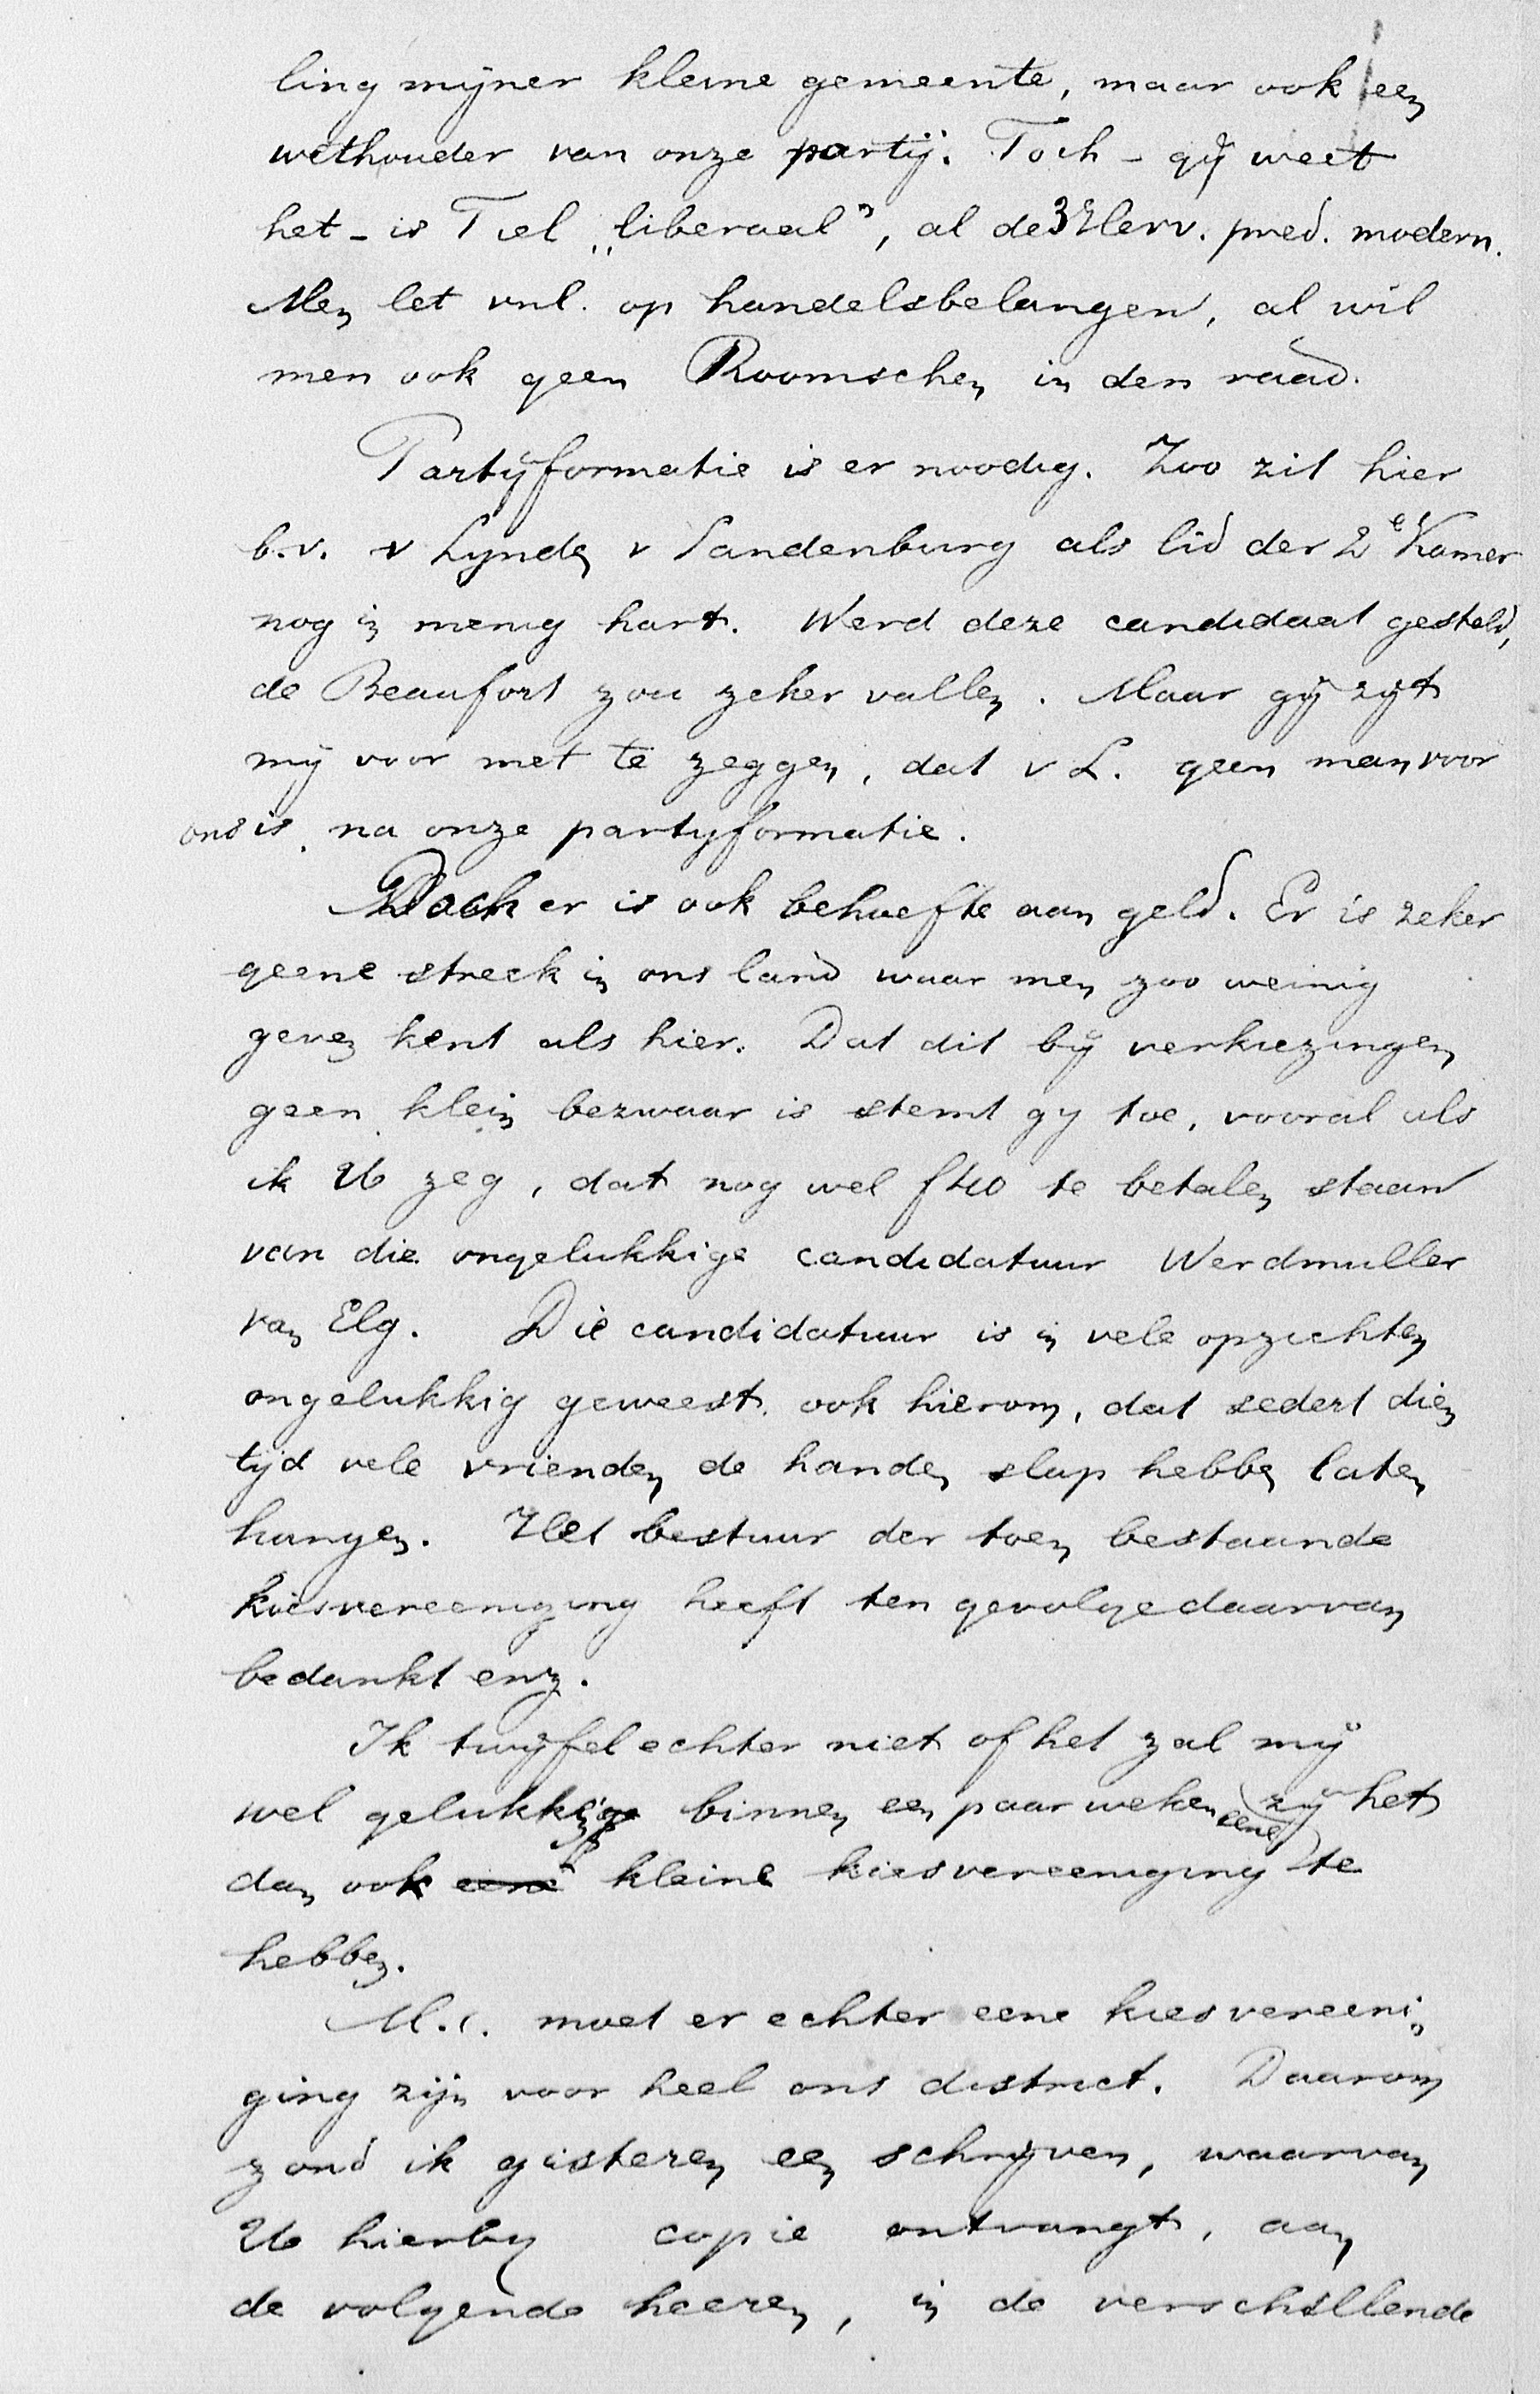 ling mijner kleine gemeente, maar ook een
wethouder van onze partij. Toch - gij weet
het - is Tiel „liberaal”, al de 3 Herv. pred. modern.
Men let vnl. op handelsbelangen, al wil
men ook geen Roomschen in den raad.
Partijformatie is er noodig. Zoo zit hier
b.v. v Lynden v Sandenburg als lid der 2e Kamer
nog in menig hart. Werd deze candidaat gesteld,
de Beaufort zou zeker vallen. Maar gij zijt
mij voor met te zeggen, dat v L. geen man voor
ons is, na onze partijformatie.
Doch er is ook behoefte aan geld. Er is zeker
geene streek in ons land waar men zoo weinig
geven kent als hier. Dat dit bij verkiezingen
geen klein bezwaar is stemt gy toe, vooral als
ik U zeg, dat nog wel f 40 te betalen staan
van die ongelukkige candidatuur Werdmuller
van Elg. Die candidatuur is in vele opzichten
ongelukkig geweest, ook hierom, dat sedert dien
tijd vele vrienden de handen slap hebben laten
hangen. Het bestuur der toen bestaande
kiesvereeniging heeft ten gevolge daarvan
bedankt enz.
Ik twijfel echter niet of het zal mij
wel gelukken binnen een paar weken zij het
dan ook eene kleine kiesvereeniging te
hebben.
M.i. moet er echter eene kiesvereeni-
ging zijn voor heel ons district. Daarom
zond ik gisteren een schrijven, waarvan
U hierby copie ontvangt, aan
de volgende heeren, in de verschillende